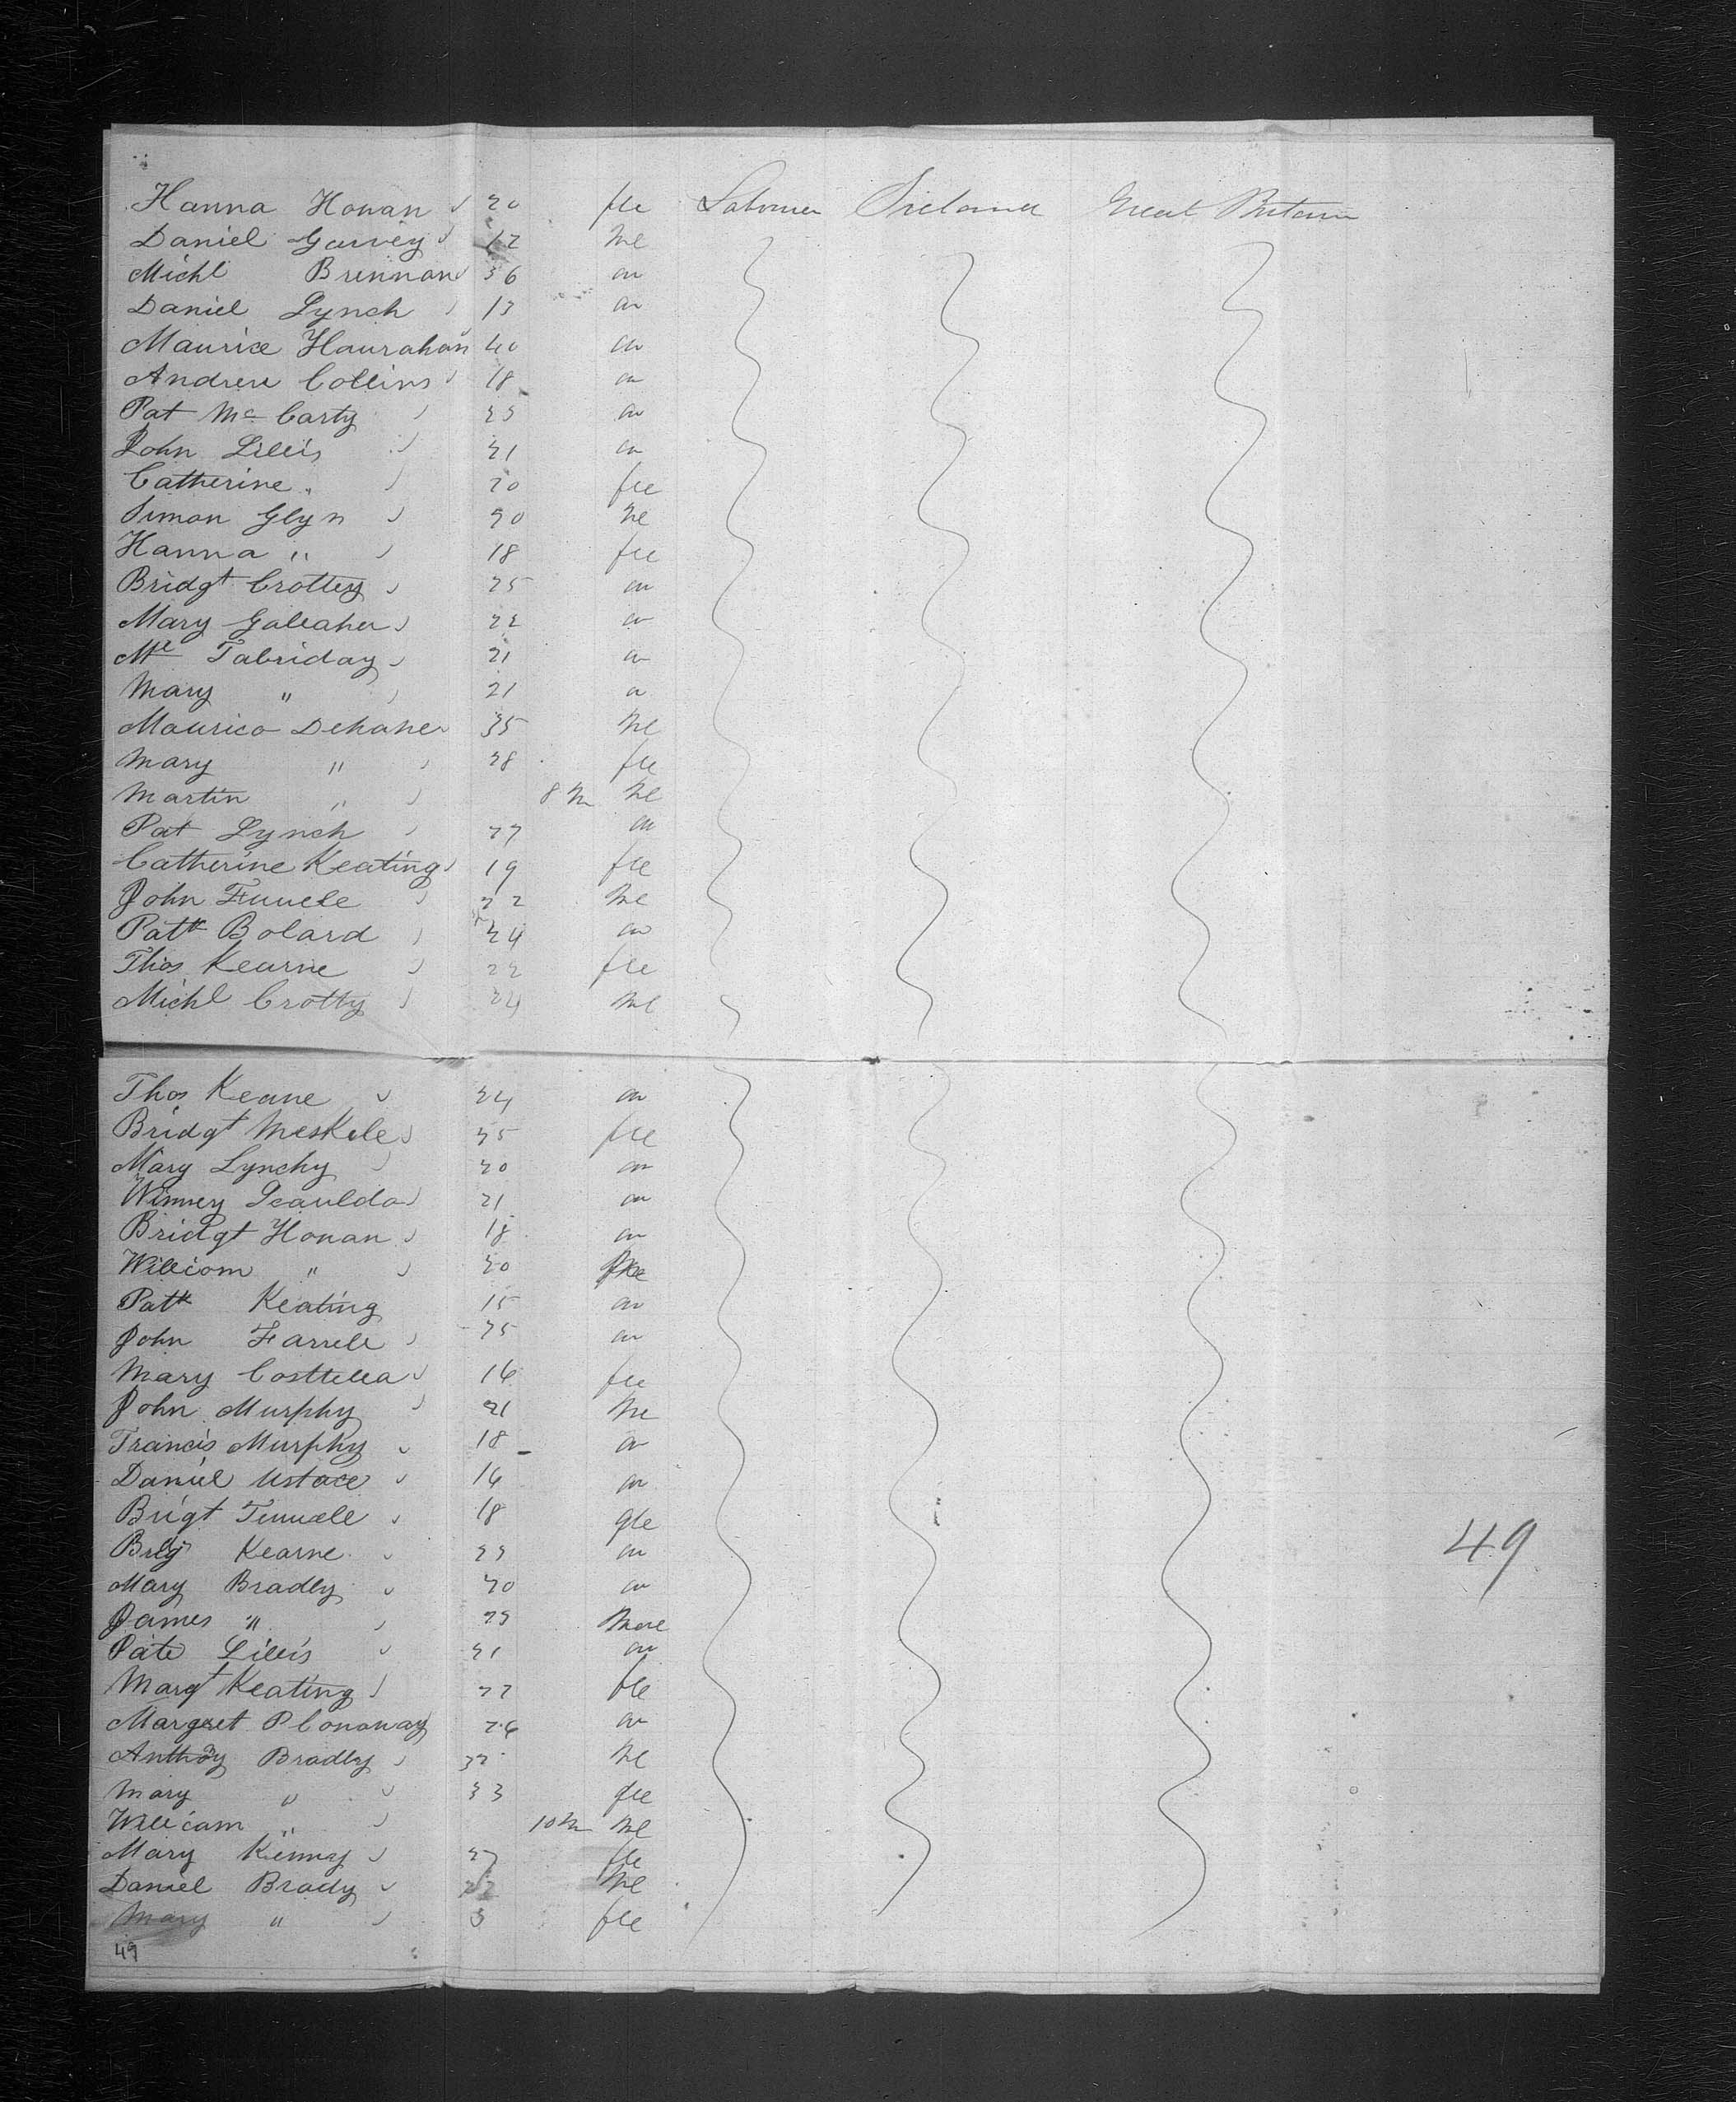 Hanna Honan 20 fle Labourer Ireland Great Britain
Daniel Garvey 12 Me
Michl Brennan 36 "
Daniel Lynch 13 "
Maurice Hourahan 40 "
Andrew Collins 18 "
Pat Mc Carty 25 "
John Lillis 21 "
Catherine " 20 fle
Simon Glyn 20 Me
Hanna " 18 fle
Bridgt Crottey 25 "
Mary Galeaher 22 "
Tabriday 21 "
Mary " 21 "
Maurice Dehane 35 Me
Mary " 28 fle
Martin " 8 M Me
Pat Lynch 27 "
Catherine Keating 19 fle
John 22 Me
Patk Bolard 24 "
Thos Kearne 22 fle
Michl Crotty 24 Me
Thos Keane 24 "
Bridgt Meskele 25 fle
Mary Lynchy 20 "
Winney 21 "
Bridgt Honan 18 "
William " 20
Patk Keating 15 "
John Farrell 25 "
Mary Costtella 16 fle
John Murphy 21 Me
Francis Murphy 18 "
Daniel Ustace 16 "
Brigt 18 fle
Kearne "
Mary Bradly 20 "
James " Male
Pate Lillis 21 "
Margt Keating 22 fle
Margret P Conoway 26 "
Anthoy Bradly 32 Me
Mary " 33 fle
William " 10 M Me
Mary Kinny 27 fle
Daniel Brady 22 Me
Mary " 3 fle
49
49